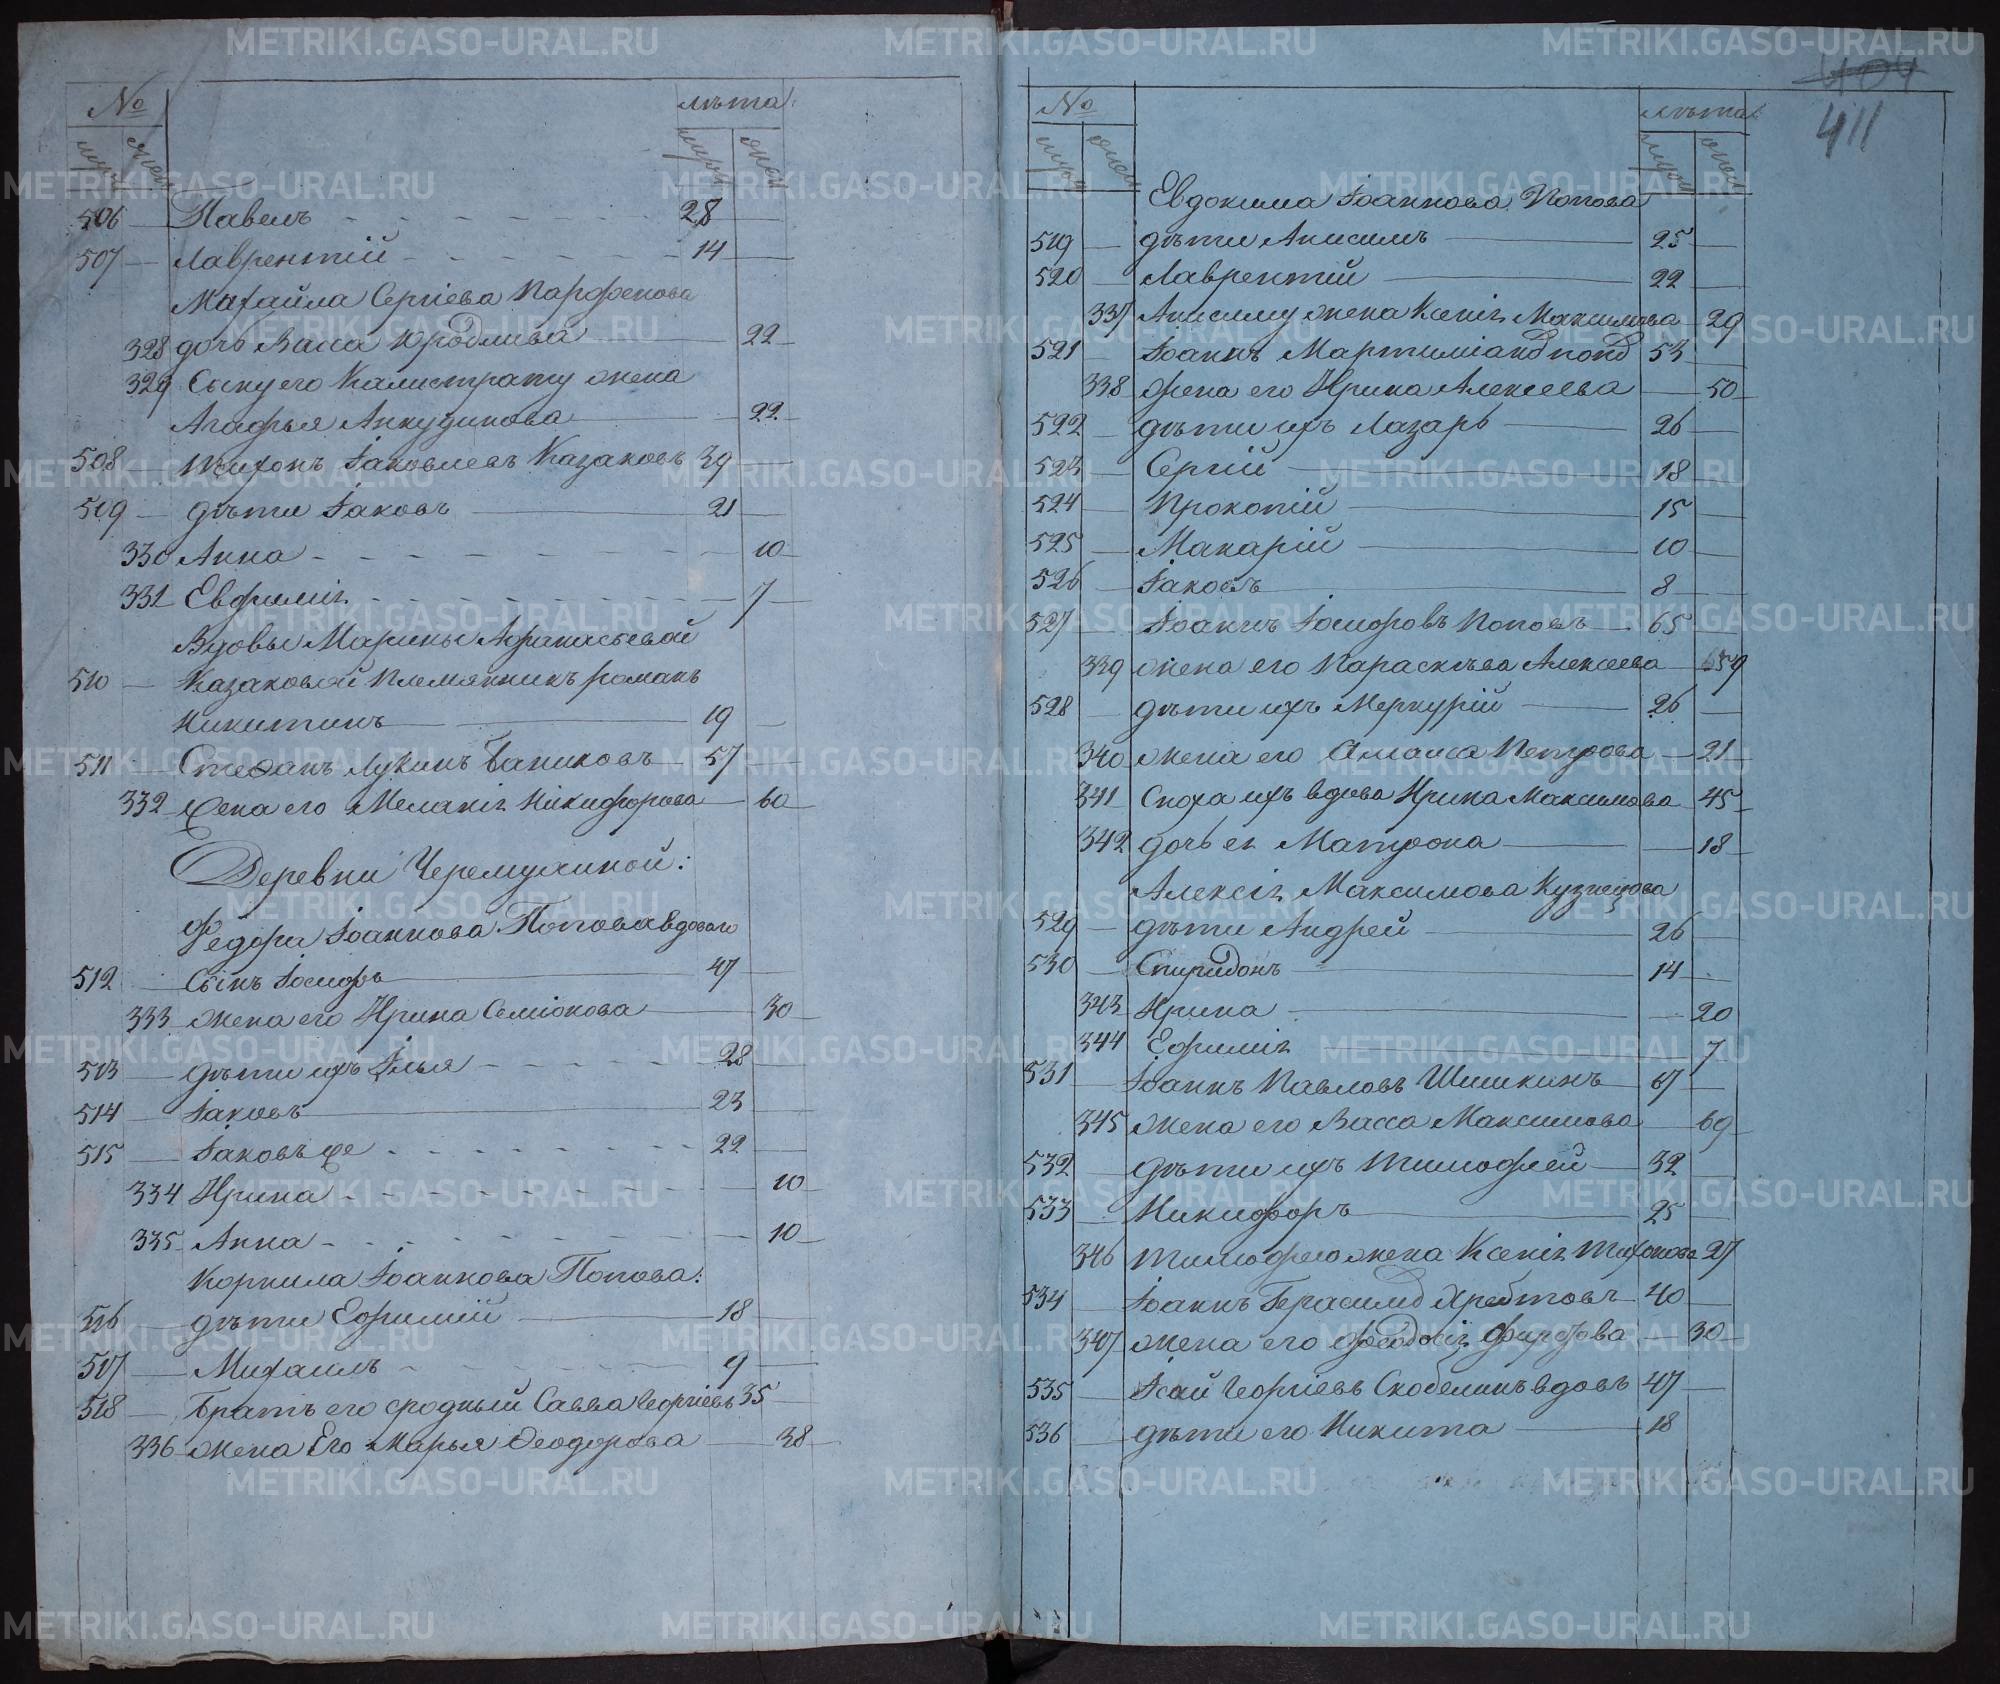 № лѣта
муж жен муж жен
506 Павелъ 28
507 Лаврентій 14
Михайла Сергіева Парфенова
328 дочь Васса Юродлива 22
329 Сыну его Калистрату жена
Агафья Анкудинова 22
508 Тихонъ Іаковлевъ Казаковъ 39
509 дѣти Іаковъ 21
330 Анна 10
331 Евфимія 7
Вдовы Марины Афанасьевой
510 Казаковой племянникъ романъ
Никитинъ 19
511 Стефанъ Лукинъ Баниковъ 57
332 Жена его Меланія Никифорова 60
Деревни Черемухиной:
Федора Іоаннова Попова вдоваго
512 Сынъ Іосифъ 47
333 жена его Ирина Семіонова 30
513 дѣти ихъ Илья 28
514 Іаковъ 23
515 Іаковъ же 22
334 Ирина 10
335 Анна 10
Корнила Іоаннова Попова:
516 дѣти Ефимій 18
517 Михаилъ 9
518 Братъ его сродный Савва Георгіевъ 35
336 жена Его Марья Феодорова 38
404
411
№ лѣта
муж жен муж жен
Евдокима Іоаннова Попова
519 дѣти Анисимъ 25
520 Лаврентій 22
337 Анисиму жена Ксенія Максимова 29
521 Іоаннъ 53
338 жена его Ирина Алексеева 50
522 дѣти ихъ Лазарь 26
523 Сергій 18
524 Прокопій 15
525 Макарій 10
526 Іаковъ 8
527 Іоаннъ Іосифовъ Поповъ 65
339 жена его Параскѣва Алексеева 59
528 дѣти ихъ Меркурій 26
340 жена его Петрова 21
341 Сноха ихъ вдова Ирина Максимова 45
342 дочь ея Матрона 18
Алексія Максимова Кузнецова
529 дѣти Андрей 26
530 Спиридонъ 14
343 Ирина 20
344 Ефимія 7
531 Іоаннъ Павловъ Шишкинъ 67
345 жена его Васса Максимова 69
532 дѣти ихъ Тимофей 32
533 Никифоръ 25
346 Тимофею жена Ксенія Тихонова 27
534 Іоаннъ Герасимъ Хребтовъ 40
347 жена его Феодосія Фирсова 30
535 Исай Георгіевъ Скобелинъ вдовъ 47
536 дѣти его Никита 18
METRIKI.GASO-URAL.RU